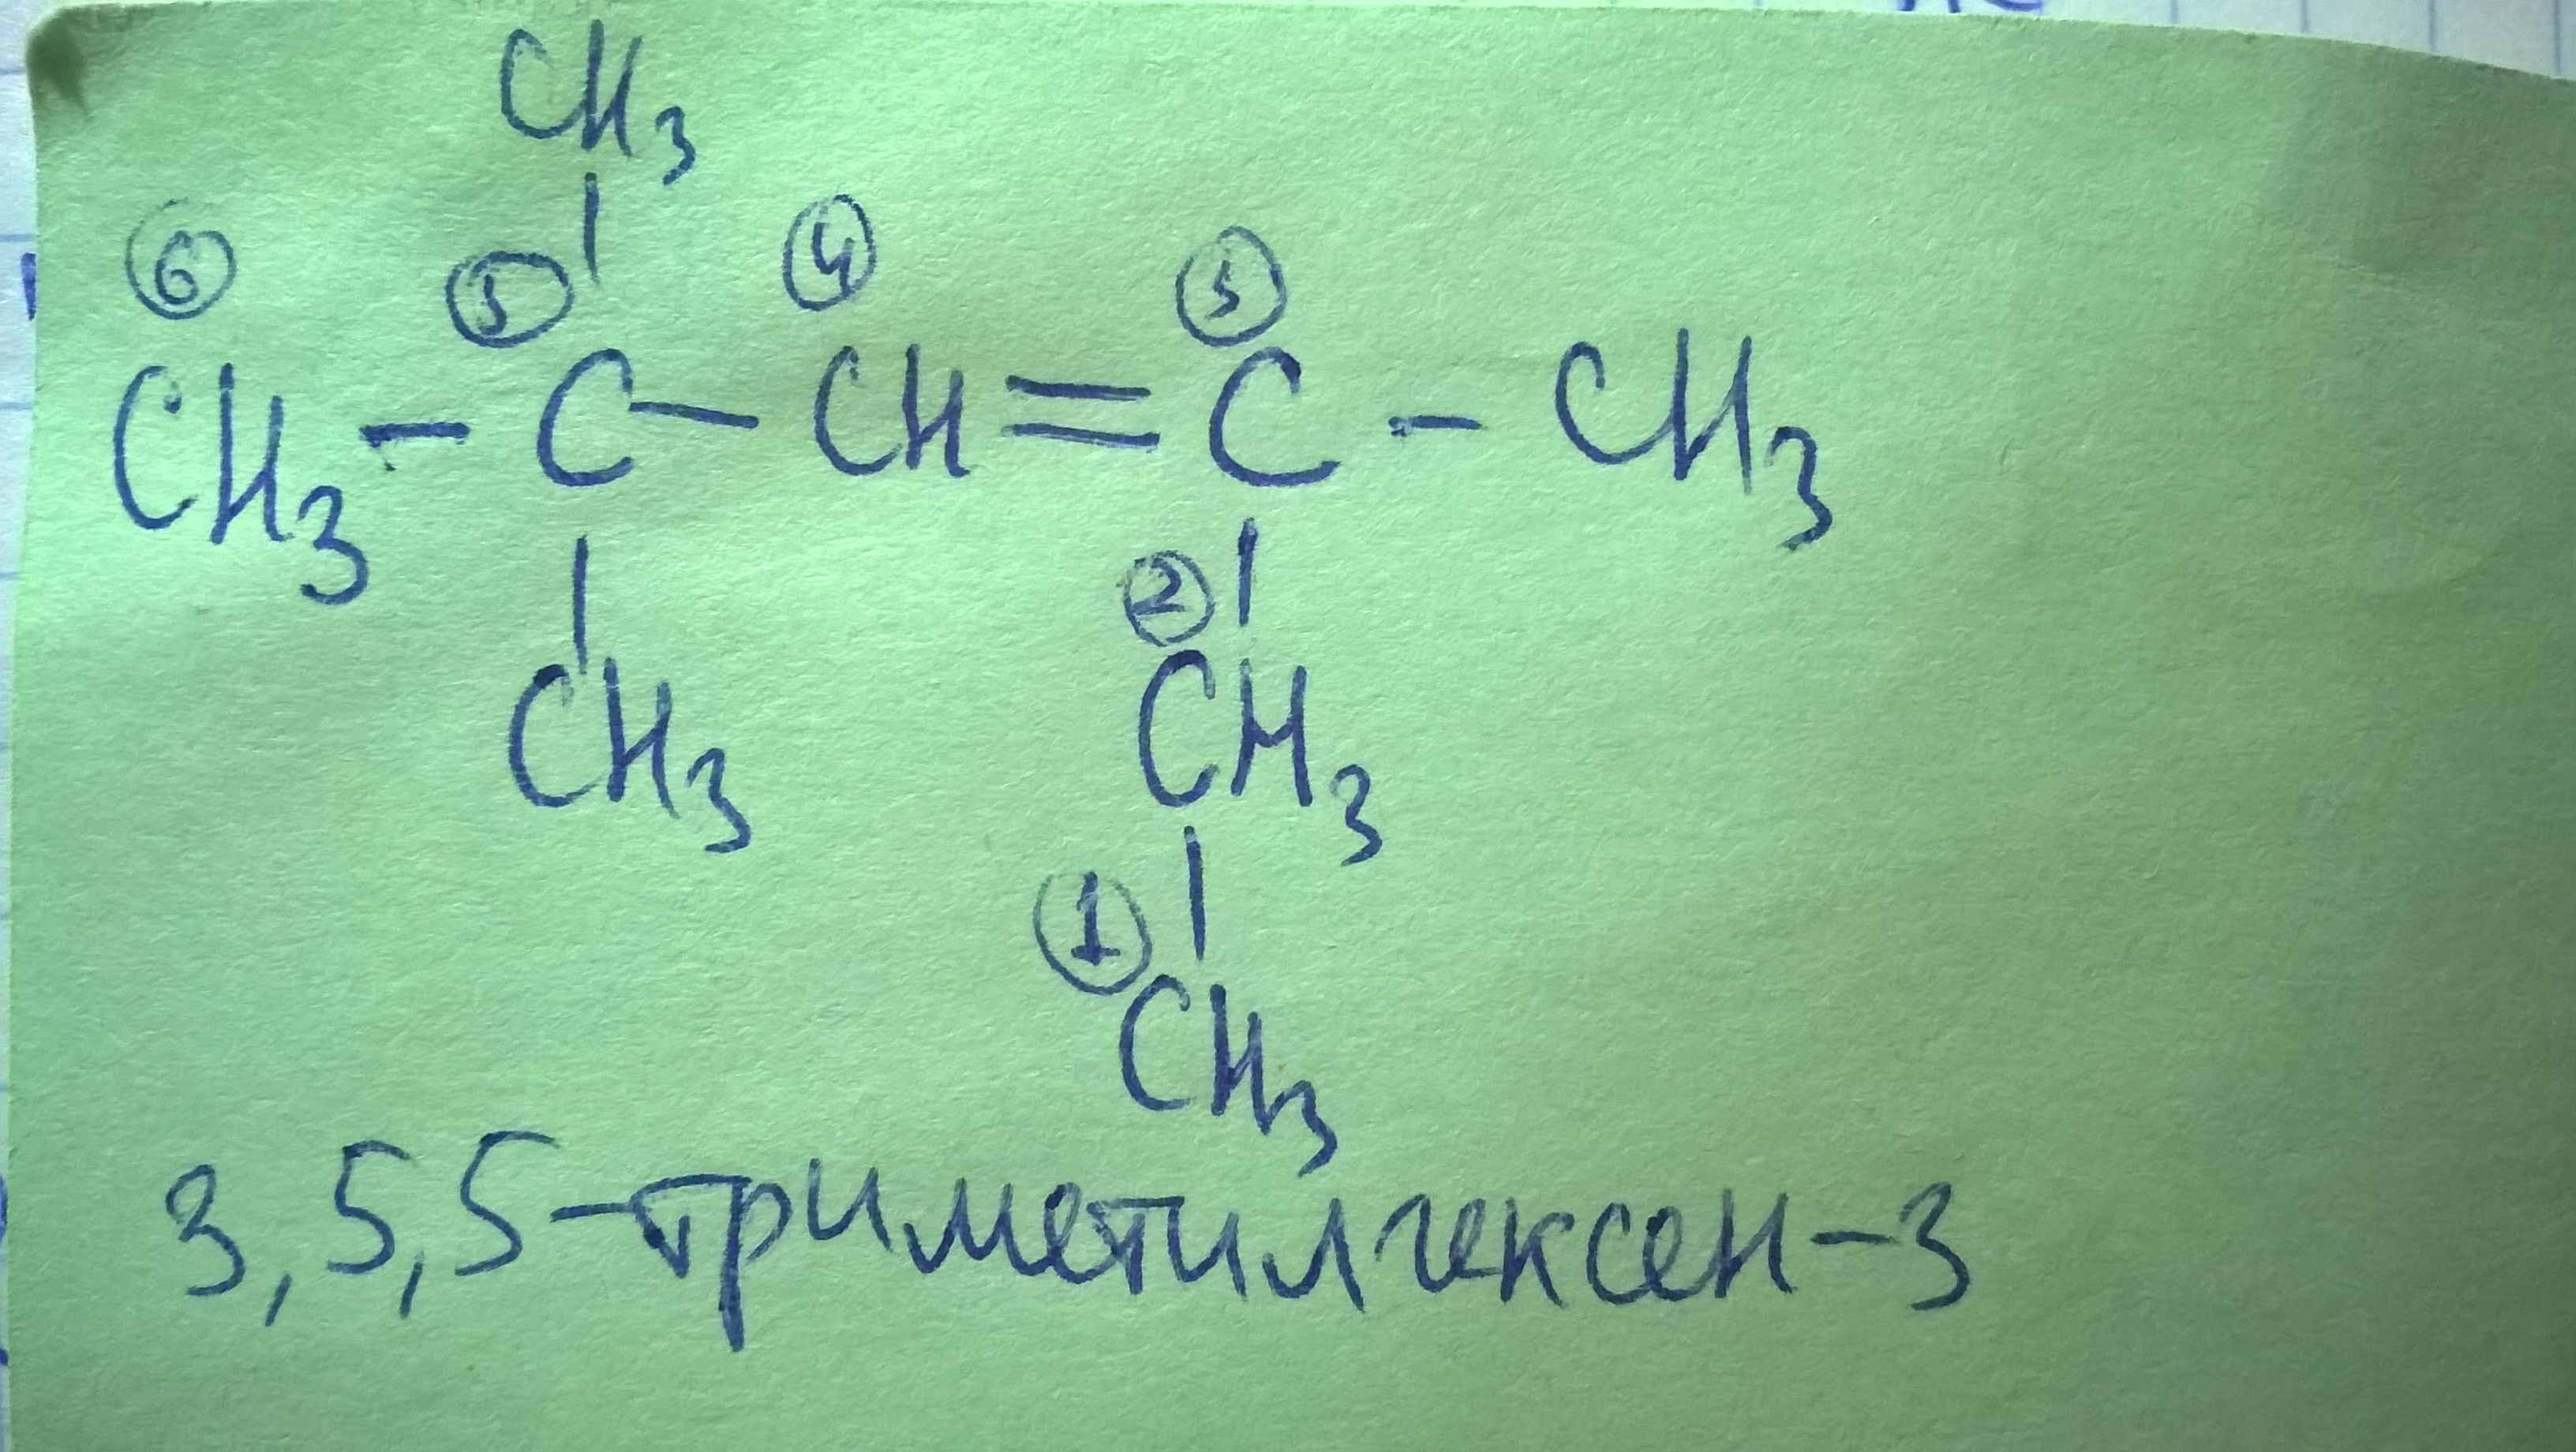 CH3
⑥ ⑤ ④ ③
CH3 - C - CH = C - CH3
②
CH3 CH3
①
CH3
3,5,5-триметилгексен-3